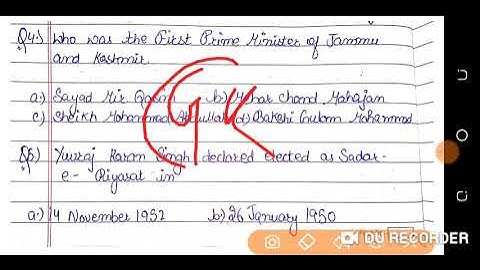 Q4:) Who was the First Prime Minister of Jammu
and Kashmir
a:) Sayad Mir b:) Mehar Chand Mahajan
c) Sheikh Mohammad Abdullah d) Bakshi Gulam Mohammad
GK
Q5) Yuvraj Karan Singh declared elected as Sadar-
e- Riyasat in
a:) 14 November 1952 b:) 26 January 1950
DU RECORDER